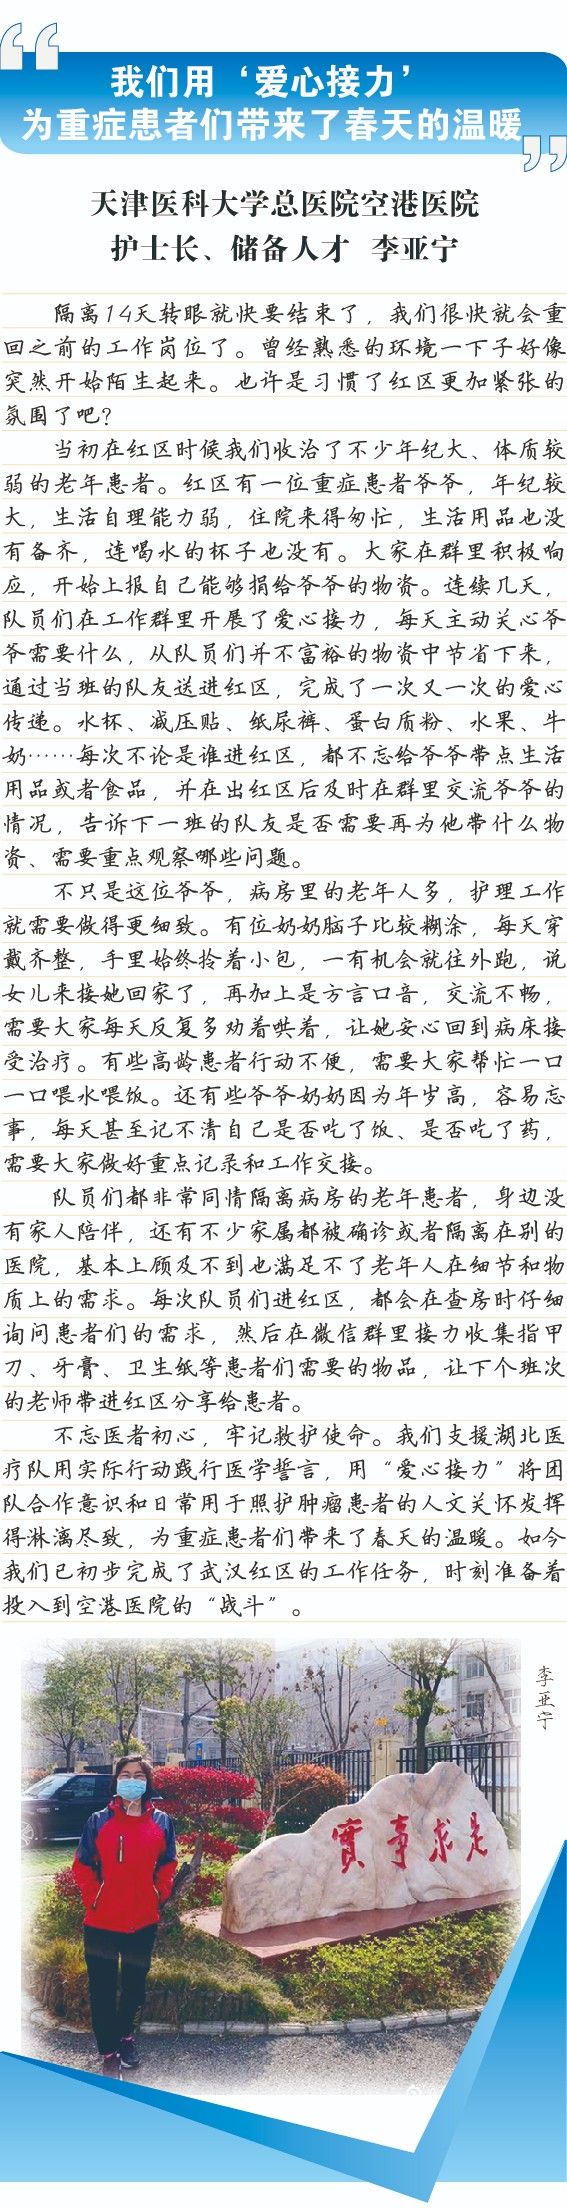 我们用‘爱心接力’
为重症患者们带来了春天的温暖
天津医科大学总医院空港医院
护士长、储备人才 李亚宁
隔离14天转眼就快要结束了，我们很快就会重
回之前的工作岗位了。曾经熟悉的环境一下子好像
突然开始陌生起来。也许是习惯了红区更加紧张的
氛围了吧？
当初在红区时候我们收治了不少年纪大、体质较
弱的老年患者。红区有一位重症患者爷爷，年纪较
大，生活自理能力弱，住院来得匆忙，生活用品也没
有备齐，连喝水的杯子也没有。大家在群里积极响
应，开始上报自己能够捐给爷爷的物资。连续几天，
队员们在工作群里开展了爱心接力，每天主动关心爷
爷需要什么，从队员们并不富裕的物资中节省下来，
通过当班的队友送进红区，完成了一次又一次的爱心
传递。水杯、减压贴、纸尿裤、蛋白质粉、水果、牛
奶……每次不论是谁进红区，都不忘给爷爷带点生活
用品或者食品，并在出红区后及时在群里交流爷爷的
情况，告诉下一班的队友是否需要再为他带什么物
资、需要重点观察哪些问题。
不只是这位爷爷，病房里的老年人多，护理工作
就需要做得更细致。有位奶奶脑子比较糊涂，每天穿
戴齐整，手里始终拎着小包，一有机会就往外跑，说
女儿来接她回家了，再加上是方言口音，交流不畅，
需要大家每天反复多劝着哄着，让她安心回到病床接
受治疗。有些高龄患者行动不便，需要大家帮忙一口
一口喂水喂饭。还有些爷爷奶奶因为年岁高，容易忘
事，每天甚至记不清自己是否吃了饭、是否吃了药，
需要大家做好重点记录和工作交接。
队员们都非常同情隔离病房的老年患者，身边没
有家人陪伴，还有不少家属都被确诊或者隔离在别的
医院，基本上顾及不到也满足不了老年人在细节和物
质上的需求。每次队员们进红区，都会在查房时仔细
询问患者们的需求，然后在微信群里接力收集指甲
刀、牙膏、卫生纸等患者们需要的物品，让下个班次
的老师带进红区分享给患者。
不忘医者初心，牢记救护使命。我们支援湖北医
疗队用实际行动践行医学誓言，用“爱心接力”将团
队合作意识和日常用于照护肿瘤患者的人文关怀发挥
得淋漓尽致，为重症患者们带来了春天的温暖。如今
我们已初步完成了武汉红区的工作任务，时刻准备着
投入到空港医院的“战斗”。
李亚宁
實事求是